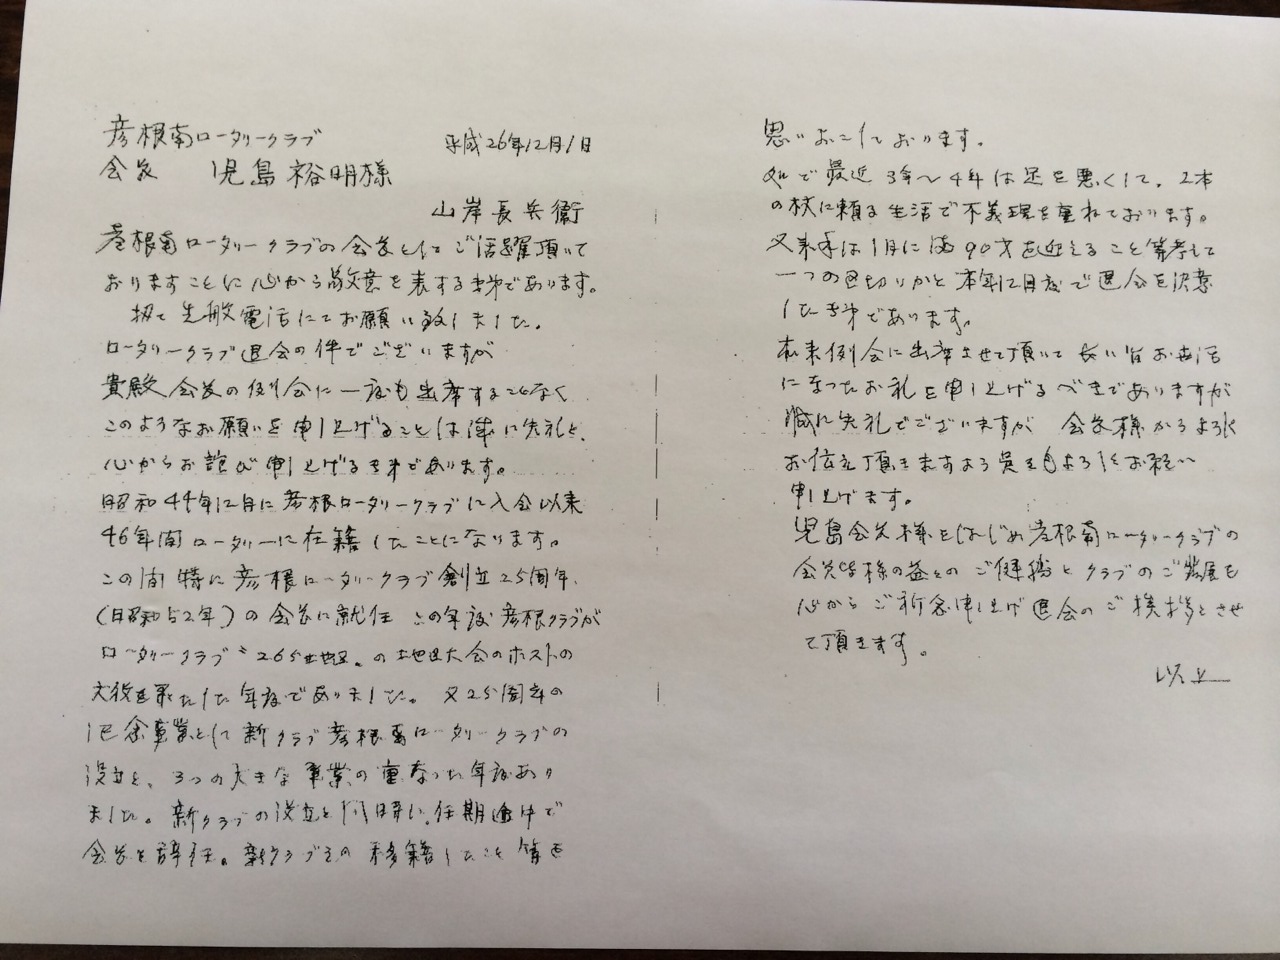 彦根南ロータリークラブ　平成26年12月1日
会長　児島裕明様
山岸長兵衛
彦根南ロータリークラブの会長としてご活躍頂いて
おりますことに心から敬意を表する次第であります。
扨て先般電話にてお願い致しました。
ロータリークラブ退会の件でございますが
貴殿会長の例会に一度も出席することなく
このようなお願いを申し上げることは誠に失礼と、
心からお詫び申し上げる次第であります。
昭和44年12月に彦根ロータリークラブに入会以来
46年間ロータリーに在籍したことになります。
この間特に彦根ロータリークラブ創立25周年、
(昭和52年)の会長に就任 この年度彦根クラブが
ロータリークラブ〝265地区〟の地区大会のホストの
大役を果たした年度でありました。又25周年の
記念事業として新クラブ彦根南ロータリークラブの
設立と、3つの大きな事業の重なった年度あり
ました。新クラブの設立と同時に、任期途中で
会長を辞任。新クラブえの移籍したこと等を
思いおこしております。
処で最近3年〜4年は足を悪くして、2本
の杖に頼る生活で不義理を重ねております。
又来年は1月に満90才を迎えること等考えて
一つの区切りかと本年12月度で退会を決意
した次第であります。
本来例会に出席させて頂いて長い間お世話
になったお礼を申し上げるべきでありますが
誠に失礼でございますが 会長様からよろしく
お伝え頂きますようをよろしくお願い
申し上げます。
児島会長様をはじめ彦根南ロータリークラブの
会員皆様の益々のご健勝とクラブのご発展を
心からご祈念申し上げ退会のご挨拶とさせ
て頂きます。
以上